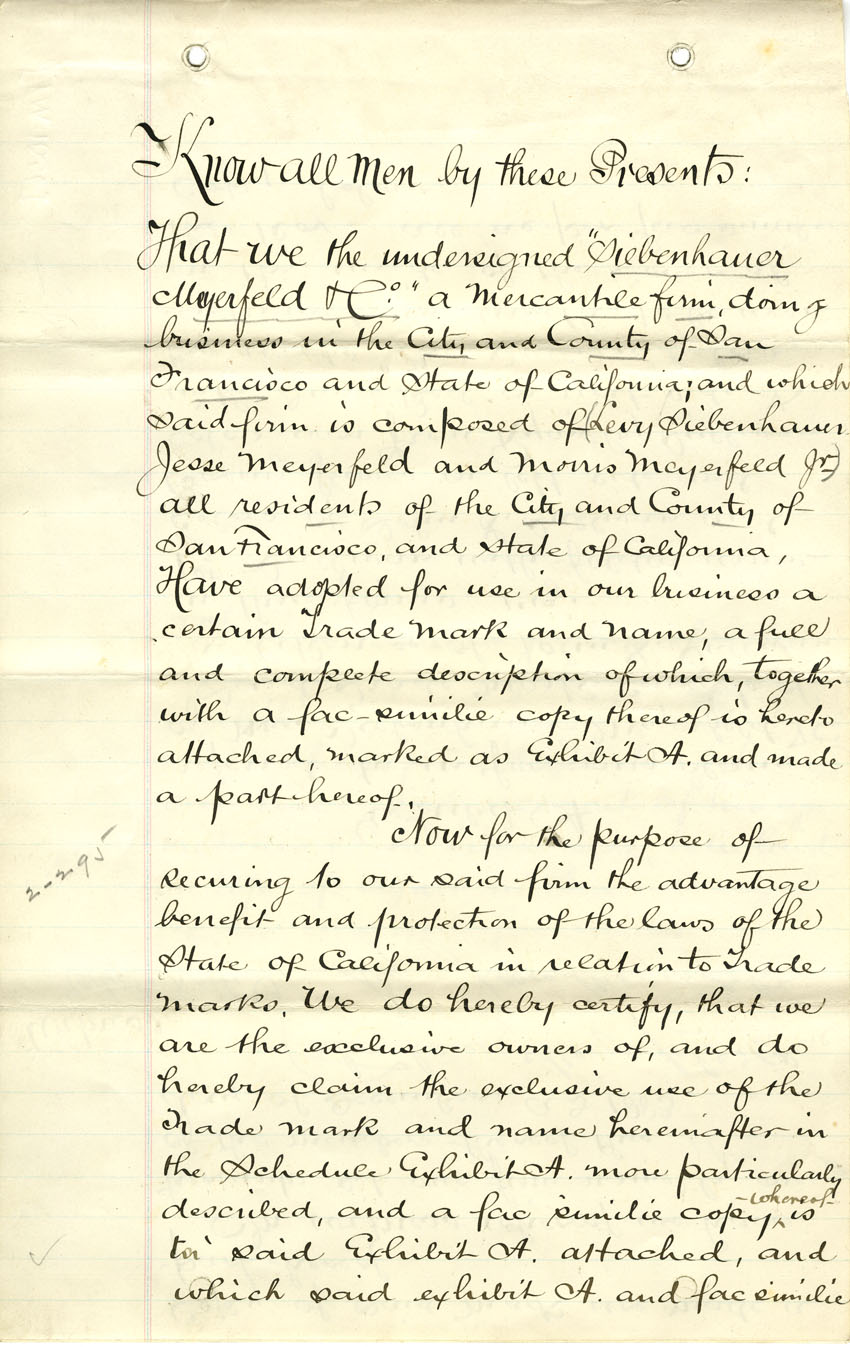 Know all Men by these Presents:
That we the undersigned "Siebenhauer
Meyerfeld & Co." a Mercantile firm, doing
business in the City and County of San
Francisco and State of California; and which
said firm is composed of (Levy Siebenhauer
Jesse Meyerfeld and Morris Meyerfeld Jr.)
all residents of the City and County of
San Francisco, and State of California,
Have adopted for use in our business a
certain Trade Mark and Name, a full
and complete description of which, together
with a fac-similie copy thereof is hereto
attached, marked as Exhibit A. and made
a part hereof.
Now for the purpose of
securing to our said firm the advantage
benefit and protection of the laws of the
State of California in relation to Trade
Marks. We do hereby certify, that we
are the exclusive owners of, and do
hereby claim the exclusive use of the
Trade Mark and name hereinafter in
the Schedule Exhibit A. more particularly
described, and a fac similie copy, whereof is
to said Exhibit A. attached, and
which said exhibit A. and fac similie
2-295